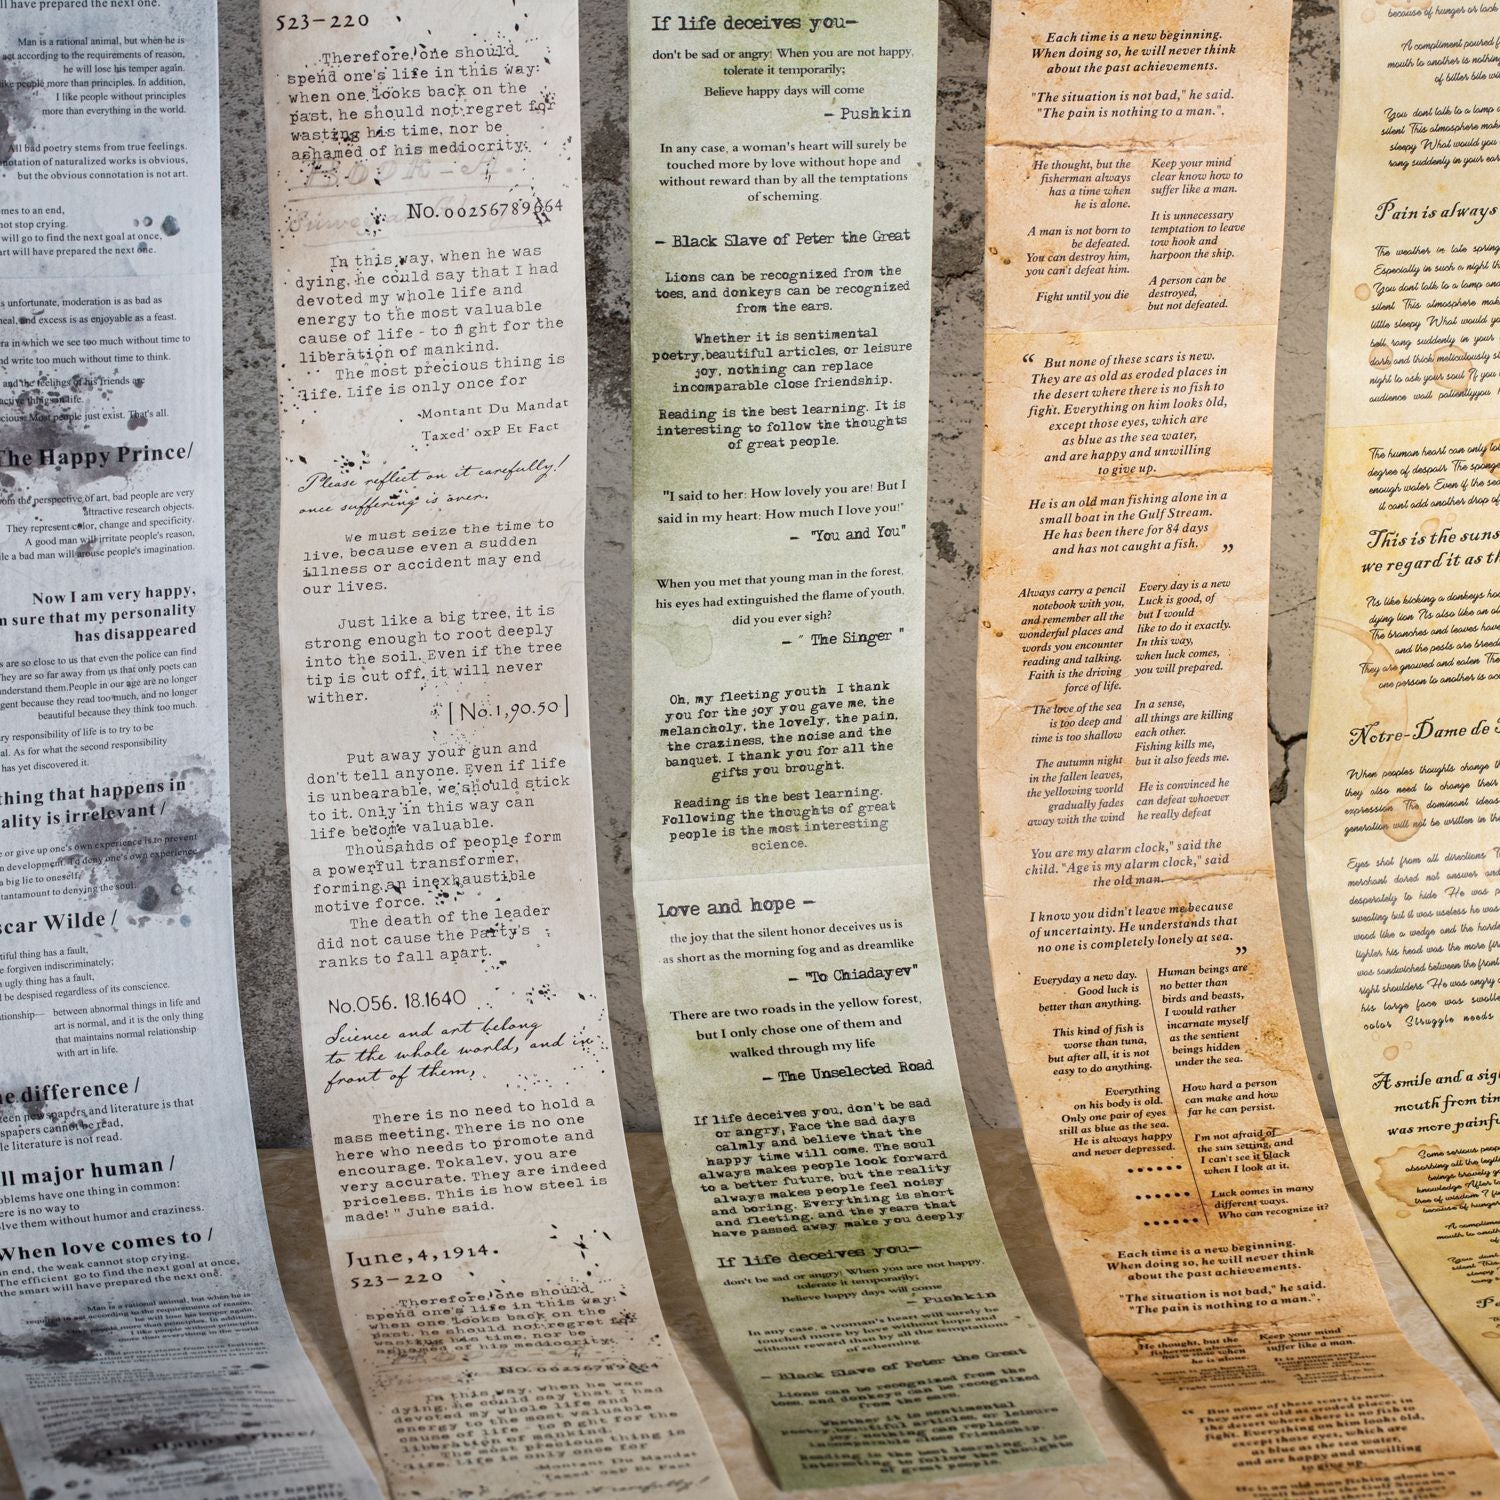 ll have prepared the next one.
Man is a rational animal, but when he is
act according to the requirements of reason,
he will lose his temper again.
like people more than principles. In addition,
I like people without principles
more than everything in the world.
All bad poetry stems from true feelings.
notation of naturalized works is obvious,
but the obvious connotation is not art.
omes to an end,
not stop crying.
will go to find the next goal at once,
art will have prepared the next one.
s unfortunate, moderation is as bad as
meal, and excess is as enjoyable as a feast.
era in which we see too much without time to
nd write too much without time to think.
and the feelings of his friends are
active things in life.
cious. Most people just exist. That's all.
The Happy Prince/
om the perspective of art, bad people are very
attractive research objects.
They represent color, change and specificity.
A good man will irritate people's reason,
ile a bad man will arouse people's imagination.
Now I am very happy,
m sure that my personality
has disappeared
s are so close to us that even the police can find
They are so far away from us that only poets can
understand them.People in our age are no longer
gent because they read too much, and no longer
beautiful because they think too much.
ry responsibility of life is to try to be
al. As for what the second responsibility
has yet discovered it.
thing that happens in
ality is irrelevant /
e or give up one's own experience is to prevent
n development. To deny one's own experience
a big lie to oneself,
tantamount to denying the soul.
scar Wilde /
tiful thing has a fault,
e forgiven indiscriminately;
n ugly thing has a fault,
l be despised regardless of its conscience.
tionship— between abnormal things in life and
art is normal, and it is the only thing
that maintains normal relationship
with art in life.
he difference /
een newspapers and literature is that
spapers cannot be read,
le literature is not read.
ll major human /
oblems have one thing in common:
ere is no way to
lve them without humor and craziness.
When love comes to /
an end, the weak cannot stop crying.
The efficient go to find the next goal at once,
the smart will have prepared the next one.
Man is a rational animal, but when he is
required to act according to the requirements of reason,
he will lose his temper again.
I like people more than principles. In addition,
I like people without principles
more than everything in the world.
The Happy Prince/
523-220
Therefore, one should
spend one's life in this way:
when one looks back on the
past, he should not regret for
wasting his time, nor be
ashamed of his mediocrity;
No. 00256789664
In this way, when he was
dying, he could say that I had
devoted my whole life and
energy to the most valuable
cause of life - to fight for the
liberation of mankind.
The most precious thing is
life. Life is only once for
Montant Du Mandat
Taxed' oxP Et Fact
Please reflect on it carefully!
once suffering is over.
we must seize the time to
live, because even a sudden
illness or accident may end
our lives.
Just like a big tree, it is
strong enough to root deeply
into the soil. Even if the tree
tip is cut off, it will never
wither.
[ No.1,90.50 ]
Put away your gun and
don't tell anyone. Even if life
is unbearable, we should stick
to it. Only in this way can
life become valuable.
Thousands of people form
a powerful transformer,
forming an inexhaustible
motive force.
The death of the leader
did not cause the Party's
ranks to fall apart.
No.056. 18.1640
Science and art belong
to the whole world, and in
front of them,
There is no need to hold a
mass meeting. There is no one
here who needs to promote and
encourage. Tokalev, you are
very accurate. They are indeed
priceless. This is how steel is
made! " Juhe said.
June,4,1914.
523-220
Therefore, one should
spend one's life in this way:
when one looks back on the
past, he should not regret for
wasting his time, nor be
ashamed of his mediocrity;
No. 00256789664
In this way, when he was
dying, he could say that I had
devoted my whole life and
energy to the most valuable
cause of life - to fight for the
liberation of mankind.
The most precious thing is
life. Life is only once for
Montant Du Mandat
Taxed' oxP Et Fact
If life deceives you—
don't be sad or angry! When you are not happy,
tolerate it temporarily;
Believe happy days will come
— Pushkin
In any case, a woman's heart will surely be
touched more by love without hope and
without reward than by all the temptations
of scheming.
— Black Slave of Peter the Great
Lions can be recognized from the
toes, and donkeys can be recognized
from the ears.
Whether it is sentimental
poetry,beautiful articles, or leisure
joy, nothing can replace
incomparable close friendship.
Reading is the best learning. It is
interesting to follow the thoughts
of great people.
"I said to her: How lovely you are! But I
said in my heart: How much I love you!"
— "You and You"
When you met that young man in the forest,
his eyes had extinguished the flame of youth,
did you ever sigh?
— " The Singer "
Oh, my fleeting youth I thank
you for the joy you gave me, the
melancholy, the lovely, the pain,
the craziness, the noise and the
banquet. I thank you for all the
gifts you brought.
Reading is the best learning.
Following the thoughts of great
people is the most interesting
science.
Love and hope —
the joy that the silent honor deceives us is
as short as the morning fog and as dreamlike
— "To Chiadayev"
There are two roads in the yellow forest,
but I only chose one of them and
walked through my life
— The Unselected Road
If life deceives you, don't be sad
or angry, Face the sad days
calmly and believe that the
happy time will come. The soul
always makes people look forward
to a better future, but the reality
always makes people feel noisy
and boring. Everything is short
and fleeting, and the years that
have passed away make you deeply
If life deceives you—
don't be sad or angry! When you are not happy,
tolerate it temporarily;
Believe happy days will come
— Pushkin
In any case, a woman's heart will surely be
touched more by love without hope and
without reward than by all the temptations
of scheming.
— Black Slave of Peter the Great
Lions can be recognized from the
toes, and donkeys can be recognized
from the ears.
Whether it is sentimental
poetry,beautiful articles, or leisure
joy, nothing can replace
incomparable close friendship.
Reading is the best learning. It is
interesting to follow the thoughts
of great people.
Each time is a new beginning.
When doing so, he will never think
about the past achievements.
"The situation is not bad," he said.
"The pain is nothing to a man.".
He thought, but the
fisherman always
has a time when
he is alone.
A man is not born to
be defeated.
You can destroy him,
you can't defeat him.
Fight until you die
Keep your mind
clear know how to
suffer like a man.
It is unnecessary
temptation to leave
tow hook and
harpoon the ship.
A person can be
destroyed,
but not defeated.
“ But none of these scars is new.
They are as old as eroded places in
the desert where there is no fish to
fight. Everything on him looks old,
except those eyes, which are
as blue as the sea water,
and are happy and unwilling
to give up.
He is an old man fishing alone in a
small boat in the Gulf Stream.
He has been there for 84 days
and has not caught a fish. ”
Always carry a pencil
notebook with you,
and remember all the
wonderful places and
words you encounter
reading and talking.
Faith is the driving
force of life.
The love of the sea
is too deep and
time is too shallow
The autumn night
in the fallen leaves,
the yellowing world
gradually fades
away with the wind
Every day is a new
Luck is good, of
but I would
like to do it exactly.
In this way,
when luck comes,
you will prepared.
In a sense,
all things are killing
each other.
Fishing kills me,
but it also feeds me.
He is convinced he
can defeat whoever
he really defeat
You are my alarm clock," said the
child. "Age is my alarm clock," said
the old man.
I know you didn't leave me because
of uncertainty. He understands that
no one is completely lonely at sea. ”
Everyday a new day.
Good luck is
better than anything.
This kind of fish is
worse than tuna,
but after all, it is not
easy to do anything.
Everything
on his body is old.
Only one pair of eyes
still as blue as the sea.
He is always happy
and never depressed.
Human beings are
no better than
birds and beasts,
I would rather
incarnate myself
as the sentient
beings hidden
under the sea.
How hard a person
can make and how
far he can persist.
I'm not afraid of
the sun setting, and
I can't see it black
when I look at it.
Luck comes in many
different ways.
Who can recognize it?
Each time is a new beginning.
When doing so, he will never think
about the past achievements.
"The situation is not bad," he said.
"The pain is nothing to a man.".
He thought, but the
fisherman always
has a time when
he is alone.
Keep your mind
clear know how to
suffer like a man.
Fight until you die
“ But none of these scars is new.
They are as old as eroded places in
the desert where there is no fish to
fight. Everything on him looks old,
except those eyes, which are
as blue as the sea water,
and are happy and unwilling
to give up.
He is an old man fishing alone in a
small boat in the Gulf Stream.
He has been there for 84 days
because of hunger or lack
A compliment poured f
mouth to another is nothing
of bitter bile wi
You dont talk to a lamp a
silent This atmosphere mak
sleepy What would you
rang suddenly in your ears
Pain is always
The weather in late spring
Especially in such a night th
You dont talk to a lamp and
silent This atmosphere mak
little sleepy What would yo
bell rang suddenly in your
dark and thick meticulously s
night to ask your soul If you
audience wait patientlyyou
The human heart can only tol
degree of despair The sponge
enough water Even if the sea
it cant add another drop of
This is the suns
we regard it as th
Its like kicking a donkeys hoo
dying lion Its also like an ol
The branches and leaves have
and the pests are breed
They are gnawed and eaten The
one person to another is acc
Notre-Dame de
When peoples thoughts change th
they also need to change their
expression The dominant ideas
generation will not be written in the
Eyes shot from all directions T
merchant dared not answer and
desperately to hide He was p
sweating but it was useless he was
wood like a wedge and the harde
tighter his head was the more fir
was sandwiched between the front
right shoulders He was angry a
his large face was swolle
color Struggle needs
A smile and a sigh
mouth from tim
was more painfu
Some serious peop
absorbing all the legiti
beings bravely
knowledge After
tree of wisdom
because of hunger
A complime
mouth to anoth